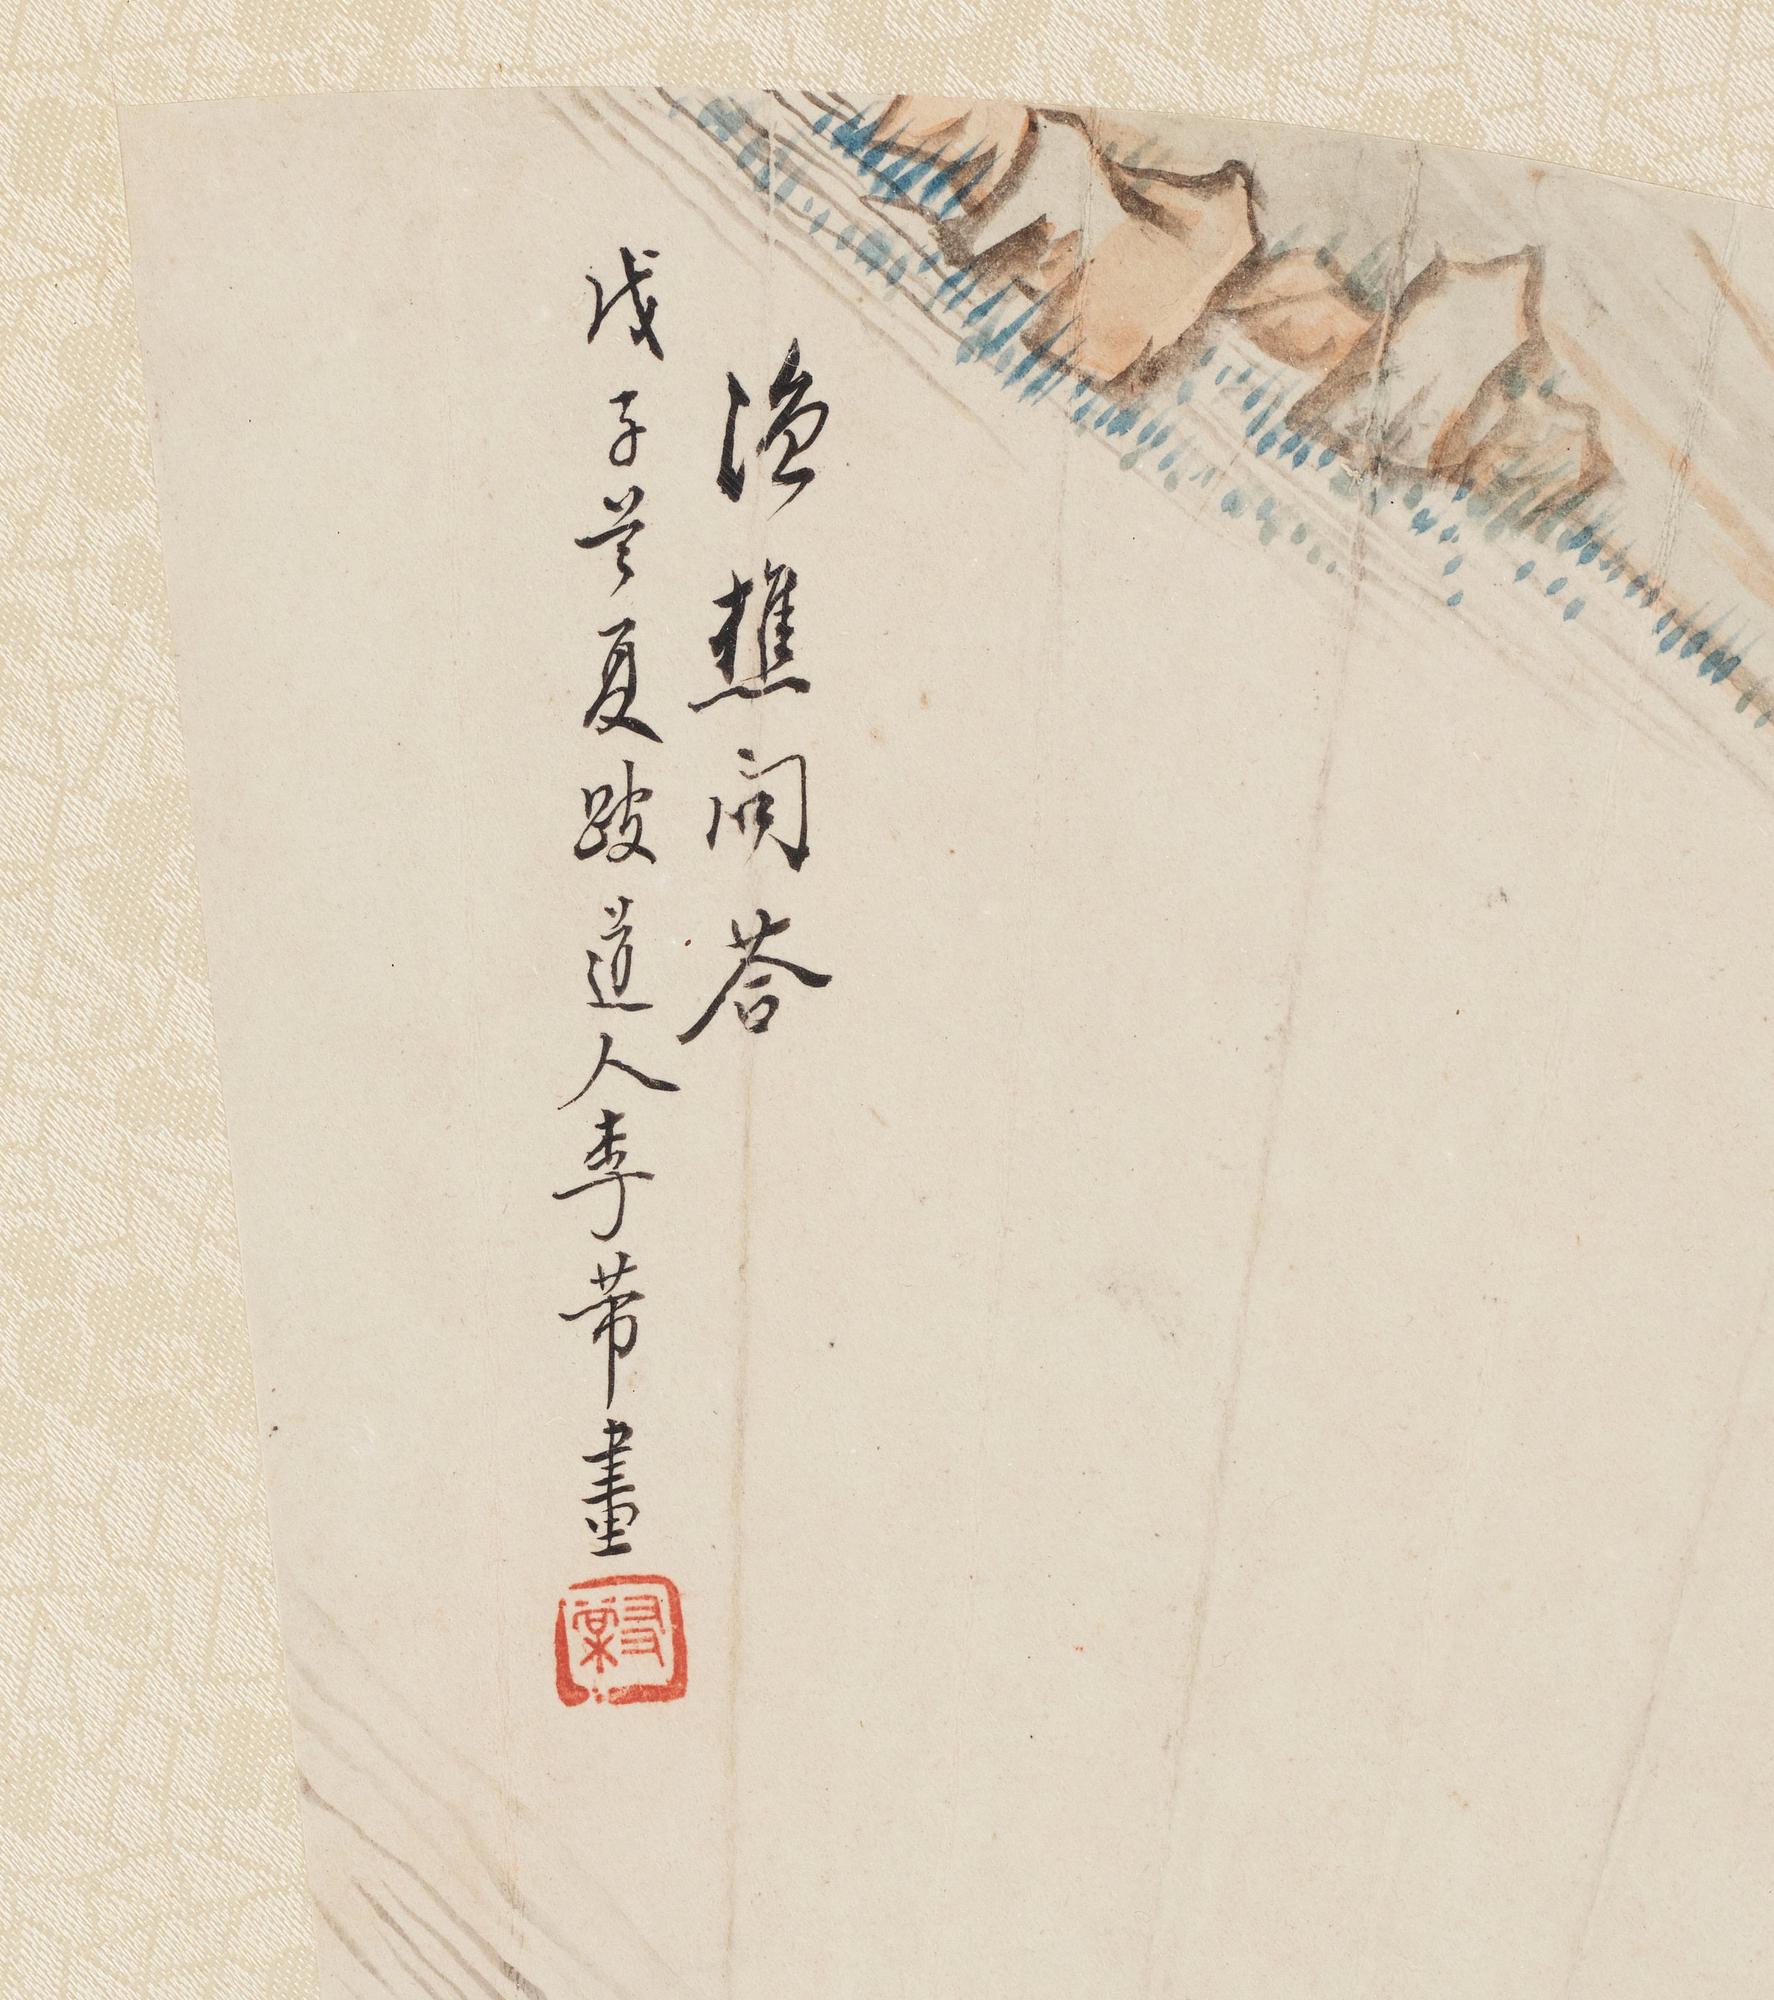 漁樵問荅
戊子首夏跛道人李芾畫